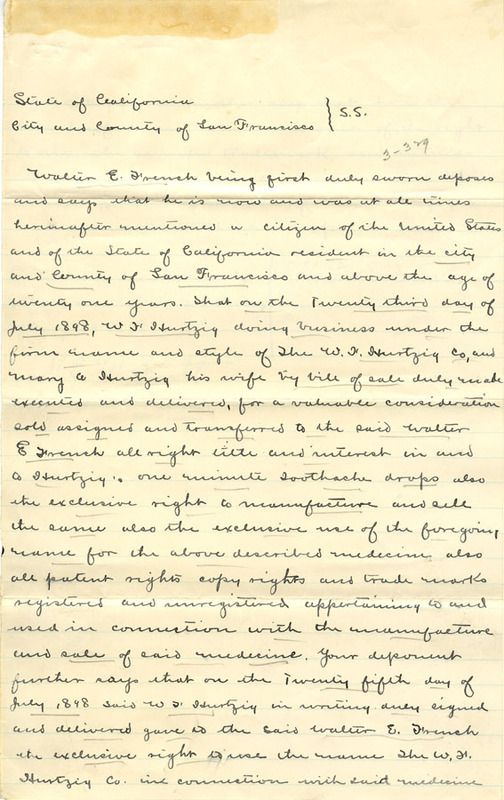 State of California
City and County of San Francisco } S.S.
3-329
Walter E. French being first duly sworn deposes
and says that he is now and was at all times
hereinafter mentioned a citizen of the United States
and of the State of California resident in the city
and County of San Francisco and above the age of
twenty one years. That on the Twenty third day of
July 1898, W F Hurtzig doing business under the
firm name and style of The W. F. Hurtzig Co, and
Mary A Hurtzig his wife by bill of sale duly made
executed and delivered, for a valuable consideration
sold assigned and transferred to the said Walter
E French all right title and interest in and
to Hurtzig's one minute toothache drops also
the exclusive right to manufacture and sell
the same also the exclusive use of the foregoing
name for the above described medicine also
all patent rights copy rights and trade marks
registered and unregistered appertaining to and
used in connection with the manufacture
and sale of said medicine. Your deponent
further says that on the Twenty fifth day of
July 1898 said W F Hurtzig in writing duly signed
and delivered gave to the said Walter E. French
the exclusive right to use the name The W. F.
Hurtzig Co. in connection with said medicine